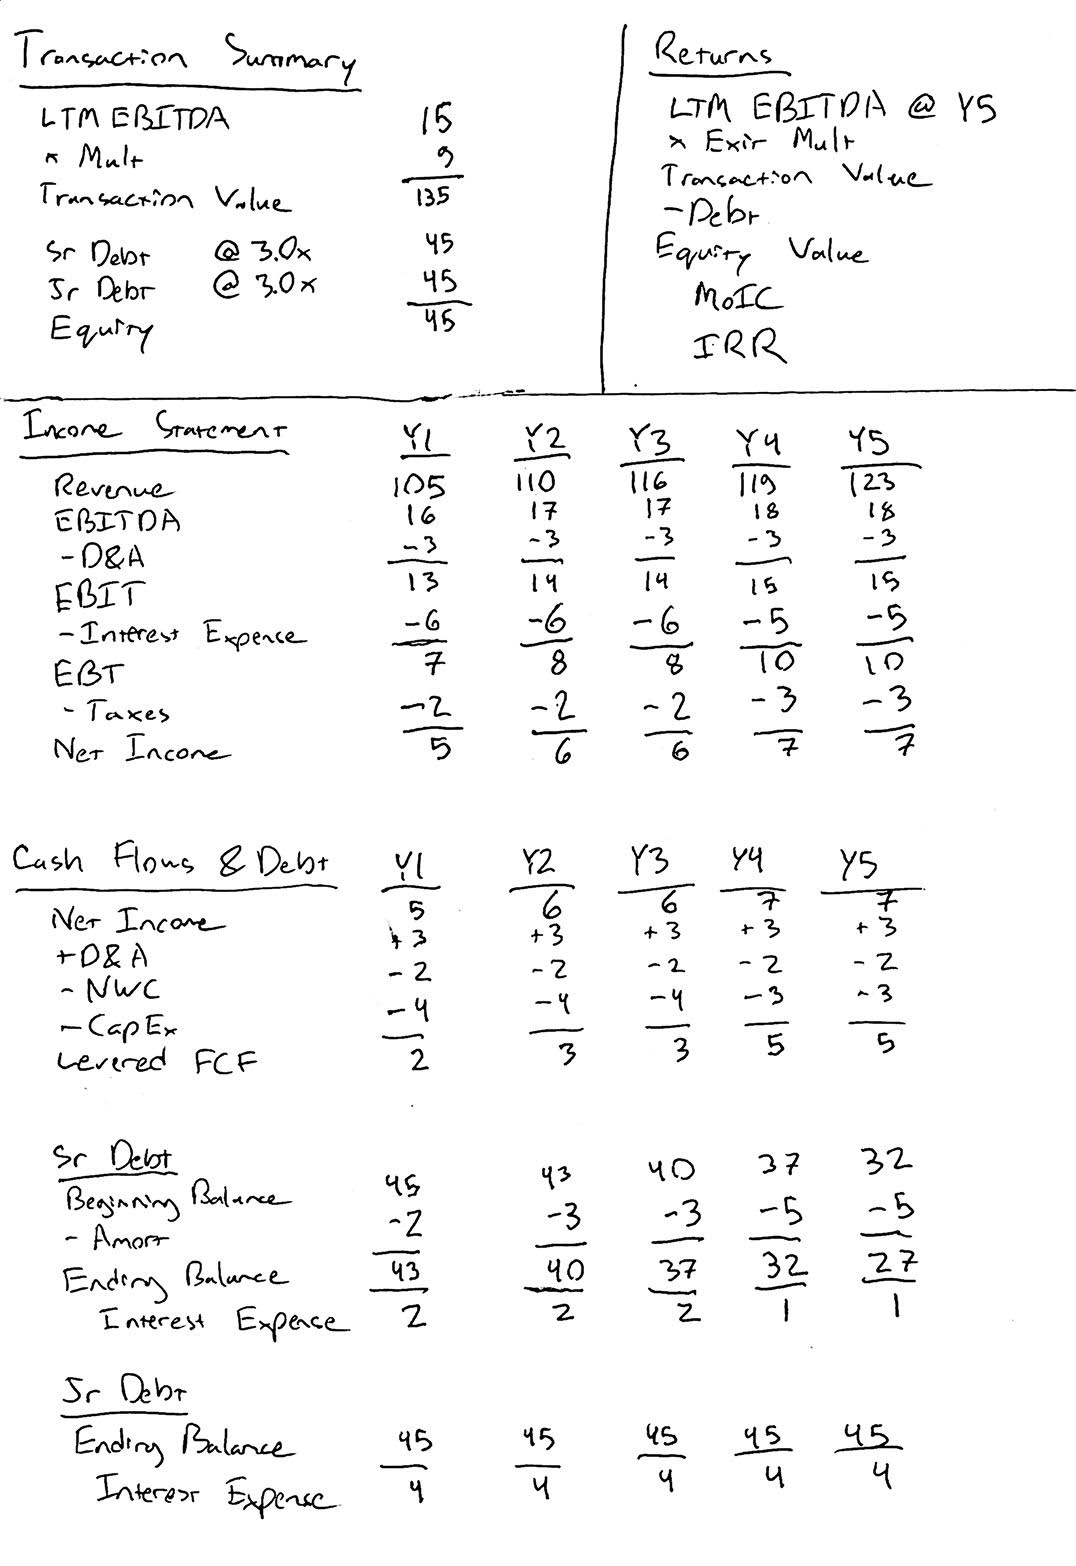 Transaction Summary
LTM EBITDA 15
x Mult 9
Transaction Value 135
Sr Debt @ 3.0x 45
Jr Debt @ 3.0x 45
Equity 45
Returns
LTM EBITDA @ Y5
x Exit Mult
Transaction Value
- Debt
Equity Value
MoIC
IRR
Income Statement Y1 Y2 Y3 Y4 Y5
Revenue 105 110 116 119 123
EBITDA 16 17 17 18 18
- D&A -3 -3 -3 -3 -3
EBIT 13 14 14 15 15
- Interest Expense -6 -6 -6 -5 -5
EBT 7 8 8 10 10
- Taxes -2 -2 -2 -3 -3
Net Income 5 6 6 7 7
Cash Flows & Debt Y1 Y2 Y3 Y4 Y5
Net Income 5 6 6 7 7
+ D&A +3 +3 +3 +3 +3
- NWC -2 -2 -2 -2 -2
- CapEx -4 -4 -4 -3 -3
Levered FCF 2 3 3 5 5
Sr Debt
Beginning Balance 45 43 40 37 32
- Amort -2 -3 -3 -5 -5
Ending Balance 43 40 37 32 27
Interest Expense 2 2 2 1 1
Jr Debt
Ending Balance 45 45 45 45 45
Interest Expense 4 4 4 4 4